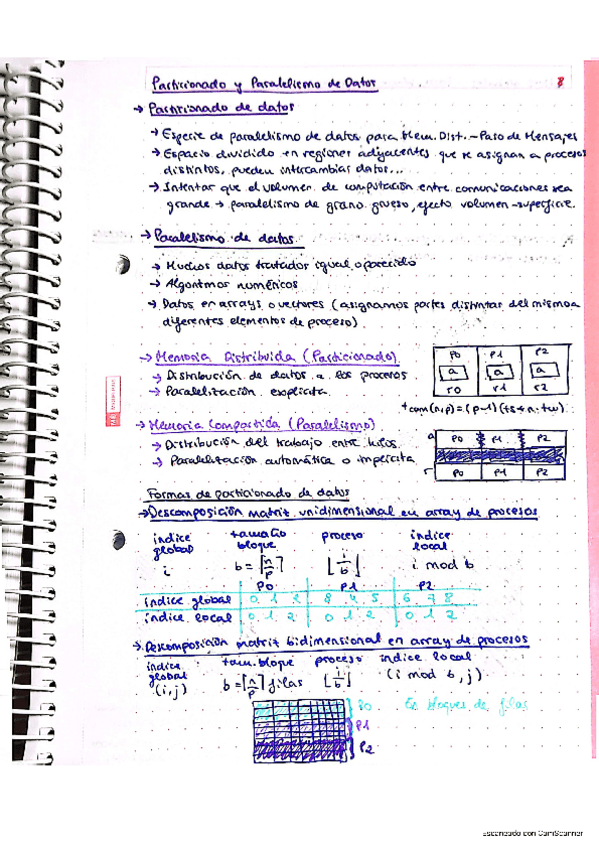 Particionado y Paralelismo de Datos 8
→ Particionado de datos
→ Especie de paralelismo de datos para Mem. Dist. - Paso de Mensajes
→ Espacio dividido en regiones adyacentes que se asignan a procesos
distintos, pueden intercambiar datos...
→ Intentar que el volumen de computación entre comunicaciones sea
grande → paralelismo de grano grueso, efecto volumen-superficie.
→ Paralelismo de datos
→ Muchos datos tratados igual o parecido
→ Algoritmos numéricos
→ Datos en arrays o vectores (asignamos partes distintas del mismo a
diferentes elementos de proceso)
→ Memoria Distribuida (Particionado)
→ Distribución de datos a los procesos
→ Paralelización explícita
P0 P1 P2
a a a
r0 r1 r2
tcom(n,p) = (p-1)(ts + n·tw)
→ Memoria Compartida (Paralelismo)
→ Distribución del trabajo entre hilos
→ Paralelización automática o implícita
a P0 P1 P2
r P0 P1 P2
Formas de particionado de datos
→ Descomposición matriz unidimensional en array de procesos
índice global tamaño bloque proceso índice local
i b = ⌈n/p⌉ ⌊i/b⌋ i mod b
P0 P1 P2
índice global 0 1 2 3 4 5 6 7 8
índice local 0 1 2 0 1 2 0 1 2
→ Descomposición matriz bidimensional en array de procesos
índice global tam. bloque proceso índice local
(i, j) b = ⌈n/p⌉ filas ⌊i/b⌋ (i mod b, j)
P0 En bloques de filas
P1
P2
Escaneado con CamScanner